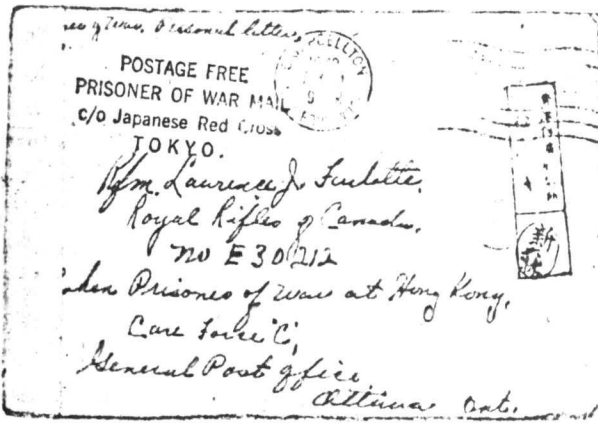 of War. Personal letter.
POSTAGE FREE
PRISONER OF WAR MAIL
c/o Japanese Red Cross
TOKYO.
Rfm. Lawrence J.
Royal Rifles of Canada.
no E30212
Prisoner of war at Hong Kong,
Care Force "C",
General Post office
Ottawa Ont.